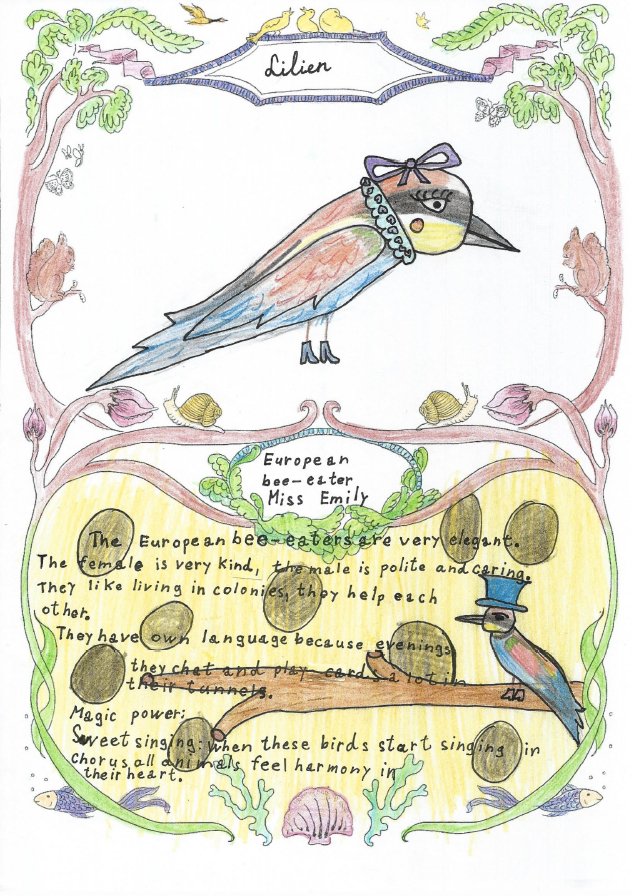 Lilien
European
bee-eater
Miss Emily
The European bee-eaters are very elegant.
The female is very kind, the male is polite and caring.
They like living in colonies, they help each
other.
They have own language because evenings
they chat and play cards a lot in
their tunnels.
Magic power:
Sweet singing: when these birds start singing in
chorus all animals feel harmony in
their heart.